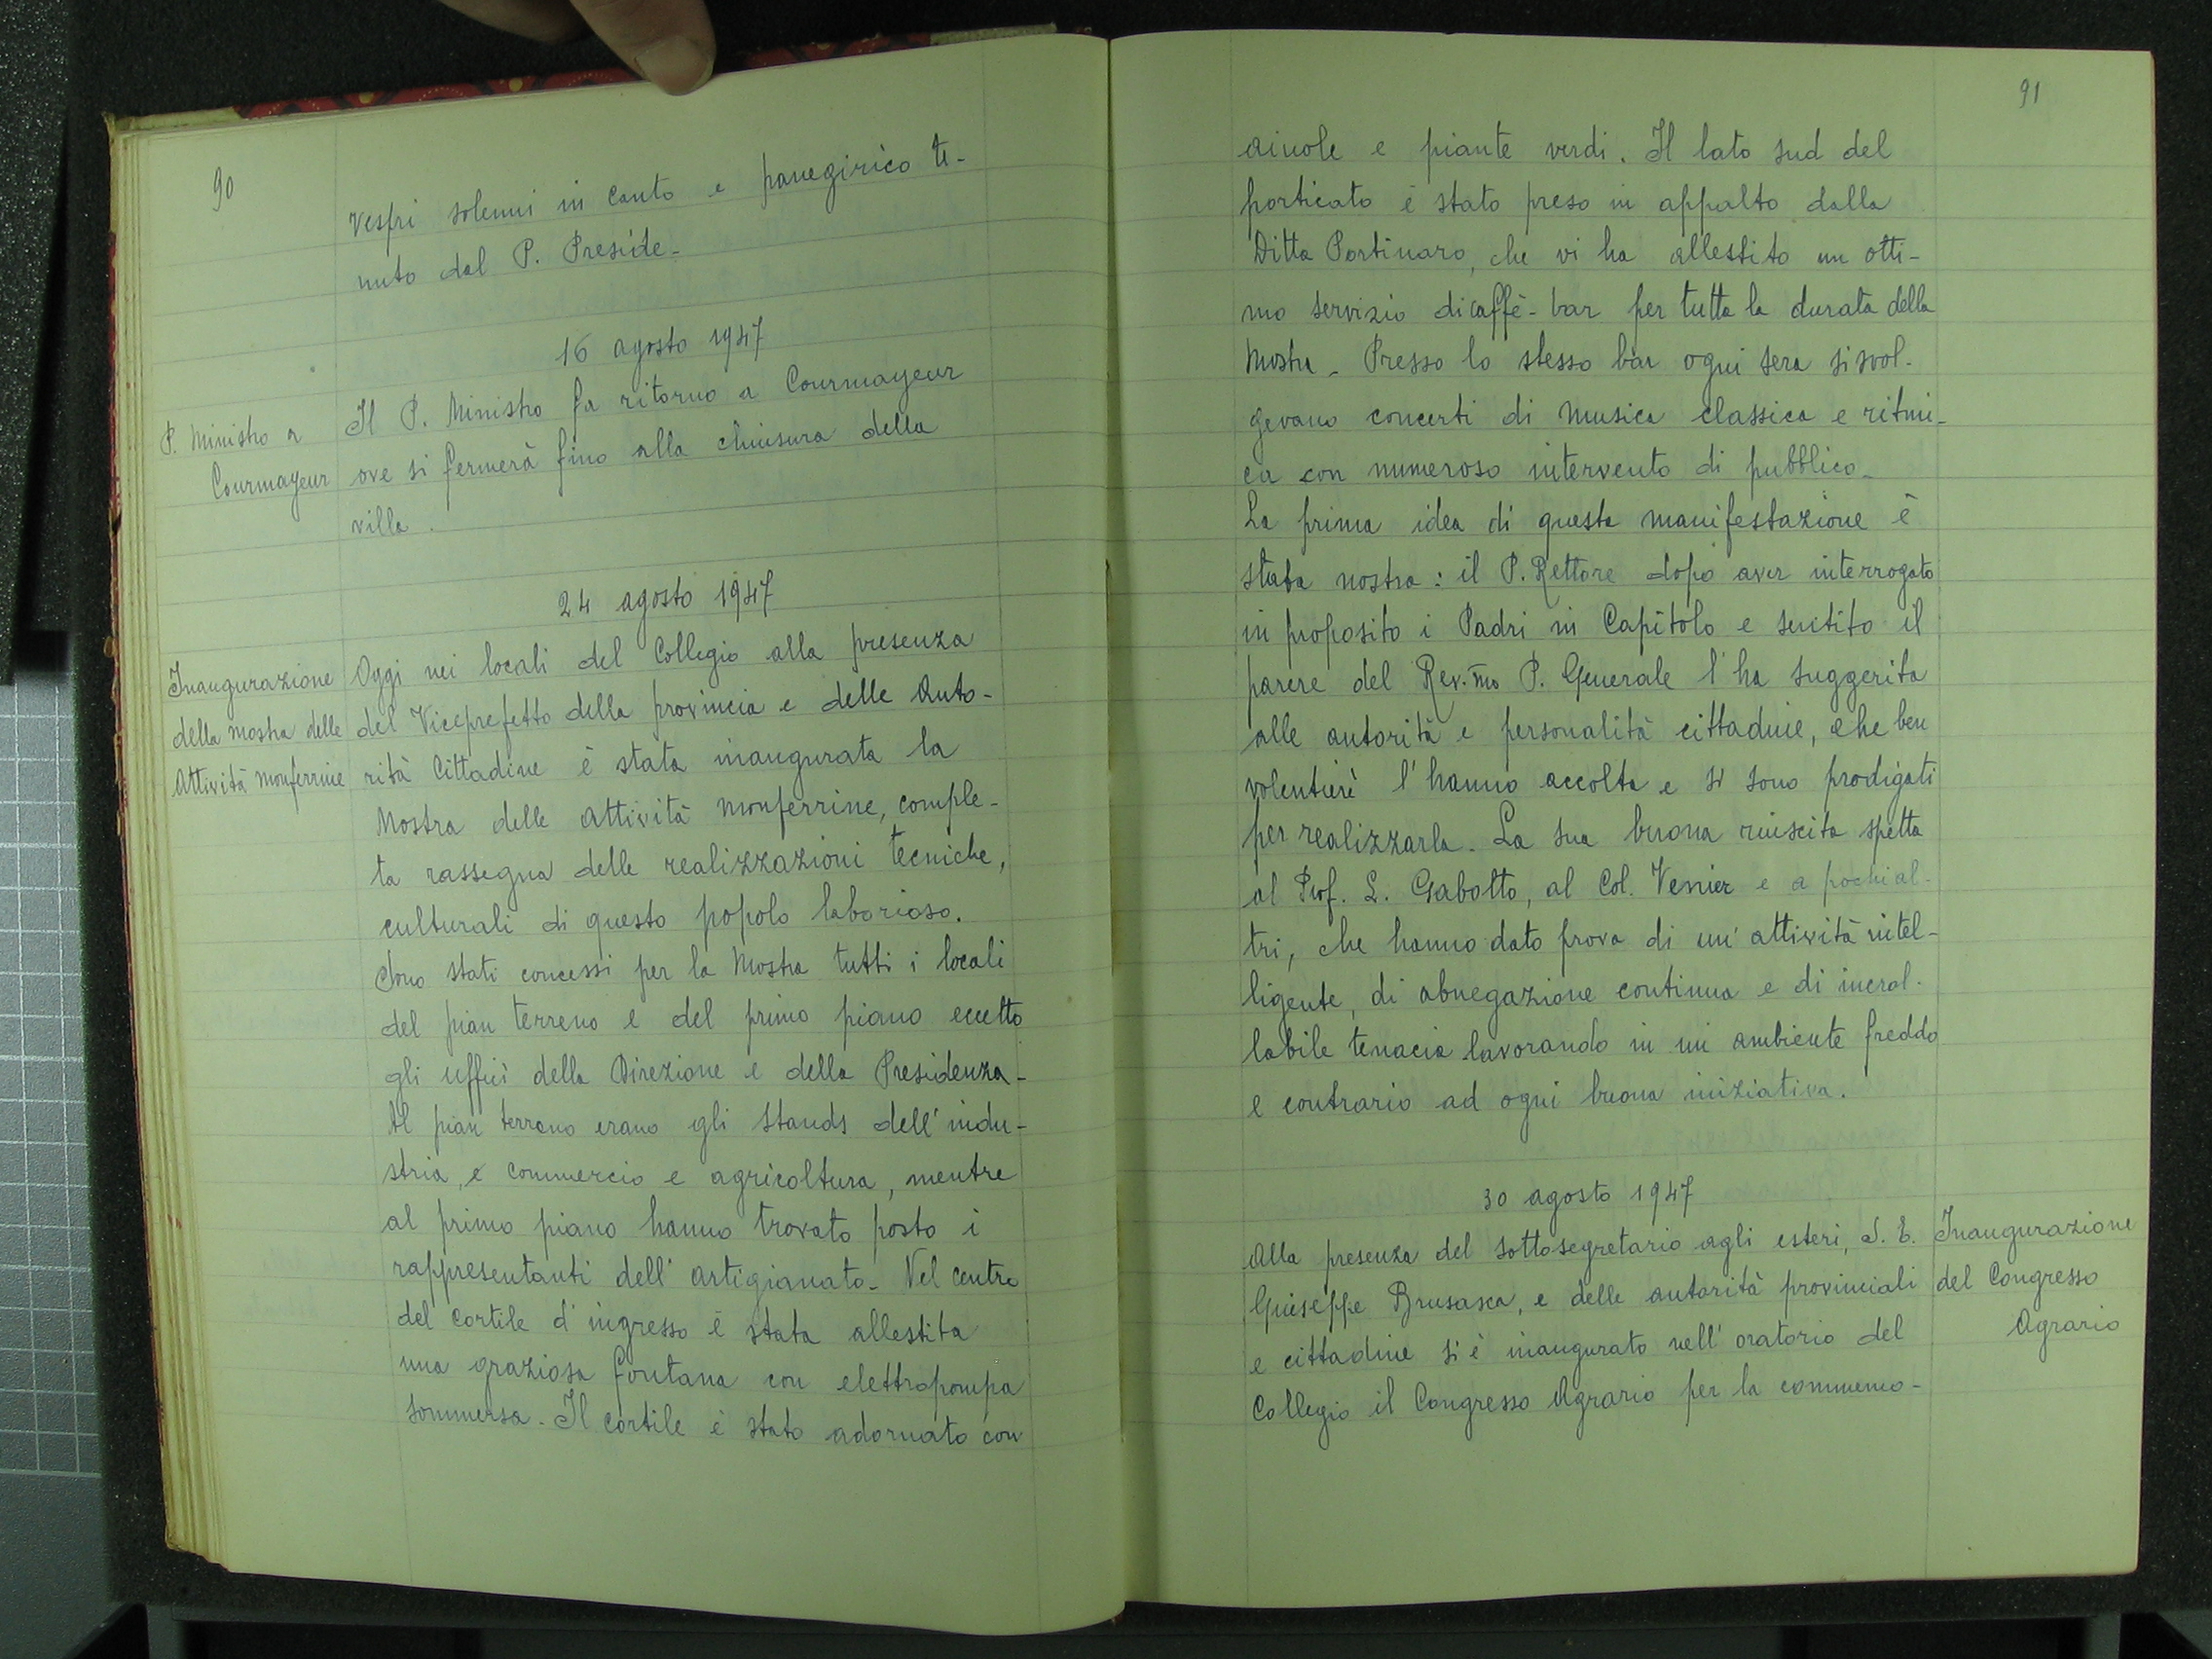 90
Vespri solenni in canto e panegirico te-
nuto dal P. Preside.
16 agosto 1947
P. Ministro a
Courmayeur
Il P. Ministro fa ritorno a Courmayeur
ove si fermerà fino alla chiusura della
villa.
24 agosto 1947
Inaugurazione
della mostra delle
Attività monferrine
Oggi nei locali del Collegio alla presenza
del Viceprefetto della provincia e delle Auto-
rità Cittadine è stata inaugurata la
Mostra delle attività monferrine, comple-
ta rassegna delle realizzazioni tecniche,
culturali di questo popolo laborioso.
Sono stati concessi per la Mostra tutti i locali
del pian terreno e del primo piano eccetto
gli uffici della Direzione e della Presidenza-
Al pian terreno erano gli stands dell'indu-
stria, e commercio e agricoltura, mentre
al primo piano hanno trovato posto i
rappresentanti dell'artigianato. Nel centro
del cortile d'ingresso è stata allestita
una graziosa fontana con elettropompa
sommersa. Il cortile è stato adornato con
91
aiuole e piante verdi. Il lato sud del
porticato è stato preso in appalto dalla
Ditta Portinaro, che vi ha allestito un otti-
mo servizio di caffè-bar per tutta la durata della
Mostra. Presso lo stesso bar ogni sera si svol-
gevano concerti di musica classica e ritmi-
ca con numeroso intervento di pubblico.
La prima idea di questa manifestazione è
stata nostra: il P. Rettore dopo aver interrogato
in proposito i Padri in Capitolo e sentito il
parere del Rev.mo P. Generale l'ha suggerita
alle autorità e personalità cittadine, che ben
volentieri l'hanno accolta e si sono prodigati
per realizzarla. La sua buona riuscita spetta
al Prof. L. Gabotto, al Col. Venier e a pochi al-
tri, che hanno dato prova di un'attività intel-
ligente, di abnegazione continua e di incrol-
labile tenacia lavorando in un ambiente freddo
e contrario ad ogni buona iniziativa.
30 agosto 1947
Alla presenza del sottosegretario agli esteri, S. E.
Giuseppe Brusasca, e delle autorità provinciali
e cittadine si è inaugurato nell'oratorio del
Collegio il Congresso Agrario per la commemo-
Inaugurazione
del Congresso
Agrario